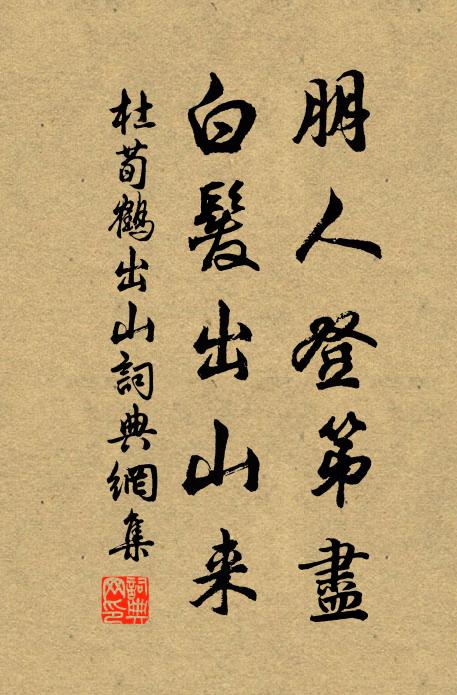 朋人登第盡
白髮出山来
杜荀鶴出山詞典網集
詞典網印